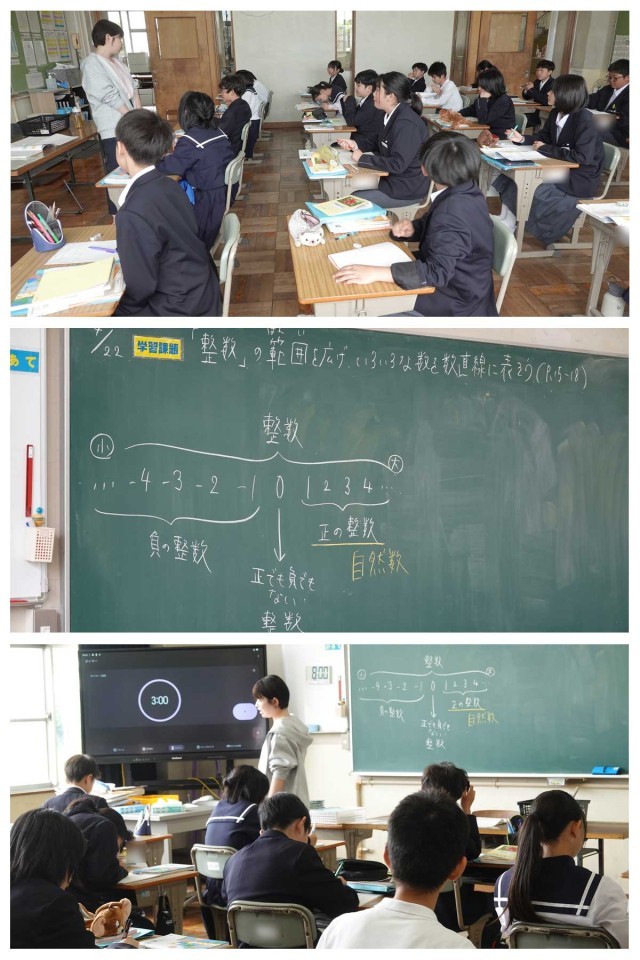 あて
/22 学習課題 「整数」の範囲を広げ、いろいろな数を数直線に表そう(P.15-18)
整数
小 大
... -4 -3 -2 -1 0 1 2 3 4 ...
負の整数
正の整数
自然数
正でも負でも
ない
整数
3:00
8:00
整数
小 大
... -4 -3 -2 -1 0 1 2 3 4 ...
負の整数
正の整数
自然数
正でも負でも
ない
整数